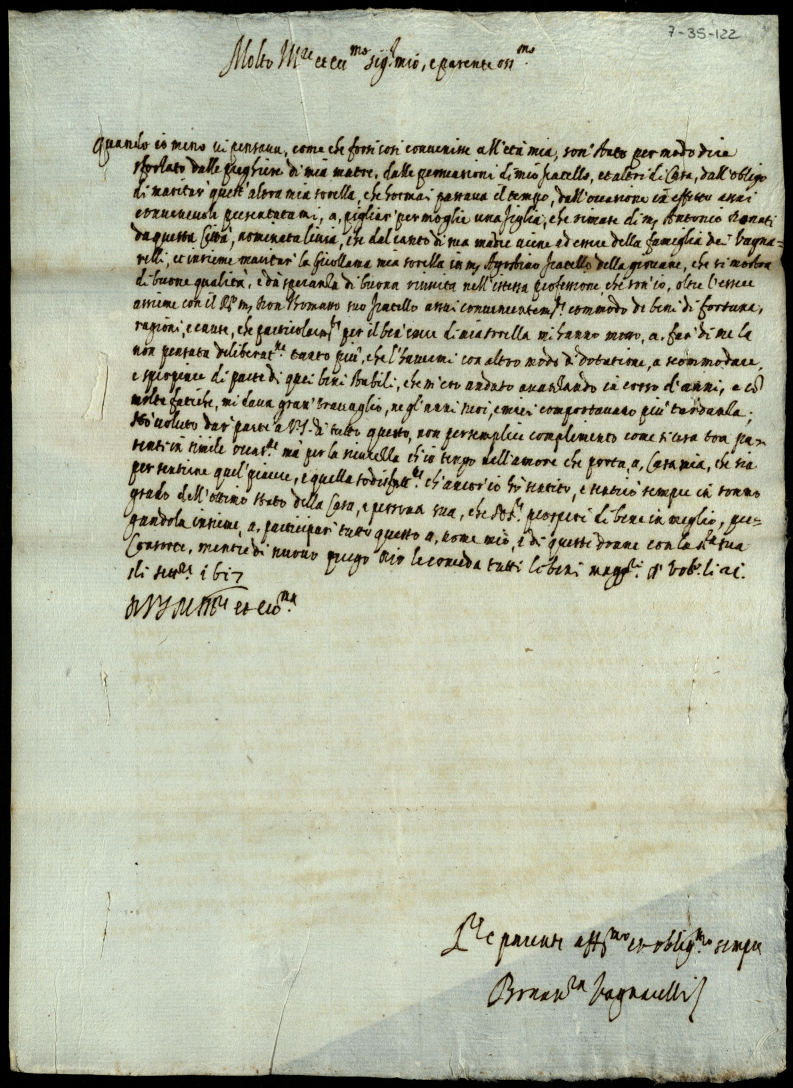 7-35-122
Molto Ill.re et ecc.mo sig.r mio, e parente oss.mo
Quando io meno vi pensava, come che forsi così convenisse all'età mia, son' stato per modo dire
sforzato dalle preghiere di mia matre, dalle persuasioni di mio fratello, et altri di Casa, dall'obligo
di maritar' quest'altra mia sorella, che hormai passava il tempo, dall'occasione in effetto assai
convenevole presentatami, a, pigliar' per moglie una figlia, che rimase di m. Antonio Donati
da questa Città, nominata Livia, che dal canto di sua madre viene ad essere della famiglia de' Vagna=
relli, et insieme maritar' la mia sorella in m. Agostino fratello della giovane, che si mostra
di buone qualità, e dà speranza di buona riuscita nell'istessa professione, che son' io, oltre l'essere
assieme con il R.do m. Don Romano suo fratello assai convenientem.te commodo de beni di fortuna,
ragioni, e cause, che particolarm.te per il ben' essere di mia sorella mi hanno mosso, a, far' di me la
non pensata deliberat.ne tanto più, che l'havermi con altro modo di dotatione, a scommodare,
e spropriare di parte di quei beni stabili, che m'ero andato avanzando in corso d'anni, e cō
molte fatiche, mi dava gran' travaglio, ne gl'anni suoi, e miei comportavano più tardanza;
Hò voluto dar' parte a V.S. di tutto questo, non per semplice complimento come si usa tra pa=
renti in simile occas.ne mà per la sicurezza ch'io tengo nell'amore che porta, a, Casa mia, che sia
per sentirne quel piacere, e quella sodisfatt.ne ch'ancor'io hò sentito, e sentirò sempre in sommo
grado dell'ottimo stato della Casa, e persona sua, che prosperi di bene in meglio, pre=
gandola insieme, a, participar' tutto questo a, nome mio, e di queste donne con la S.ra sua
Consorte, mentre di nuovo prego Dio le conceda tutti li beni magg.ri
Di V.S. Molto Ill.re et Ecc.ma
S.re e parente aff.mo et oblig.mo sempre
Vagnarelli